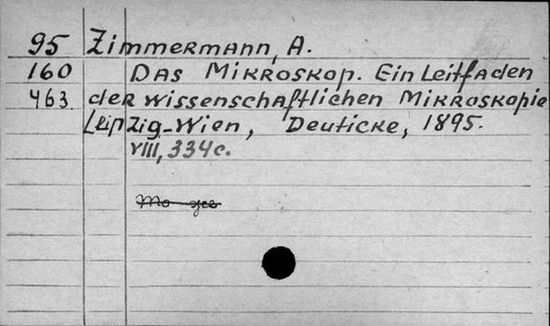 95 Zimmermann, A.
160 Das Mikroskop. Ein Leitfaden
463. der wissenschaftlichen Mikroskopie
Leipzig-Wien, Deuticke, 1895.
VIII, 334c.